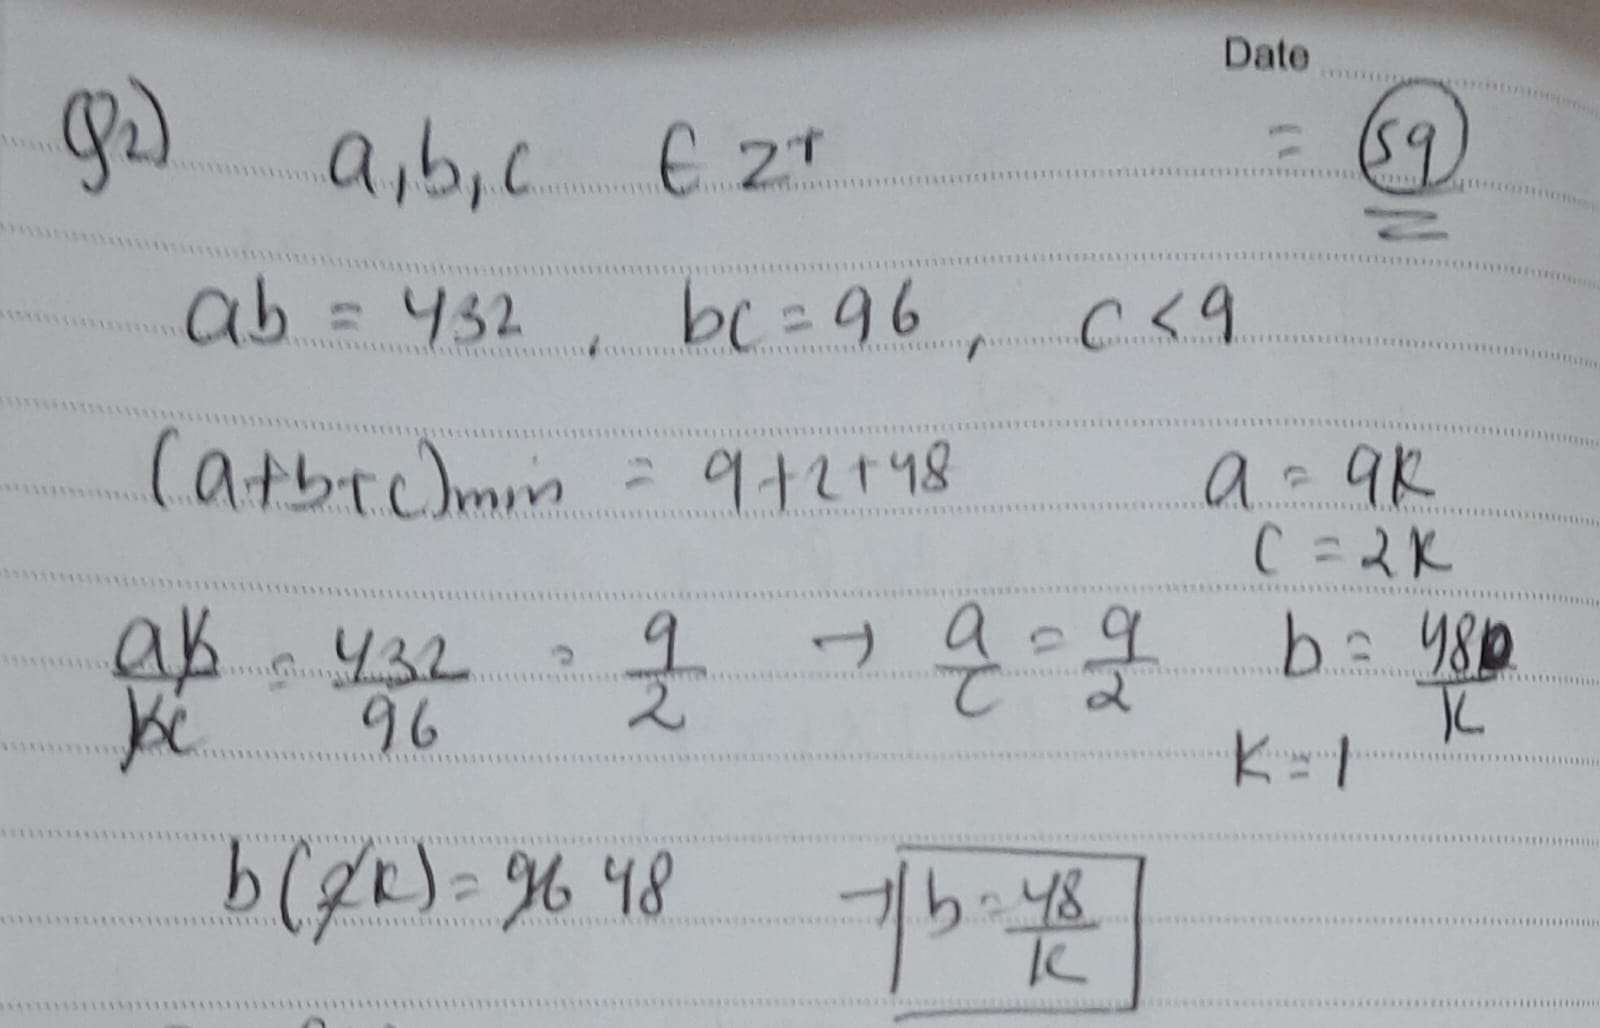 Date
Q2) a, b, c ∈ Z+ = 59
ab = 432, bc = 96, c < 9
(a+b+c)min = 9+2+48 a = 9k
c = 2k
ab/bc = 432/96 = 9/2 → a/c = 9/2 b = 48/k
k = 1
b(2k) = 96 48 → b = 48/k